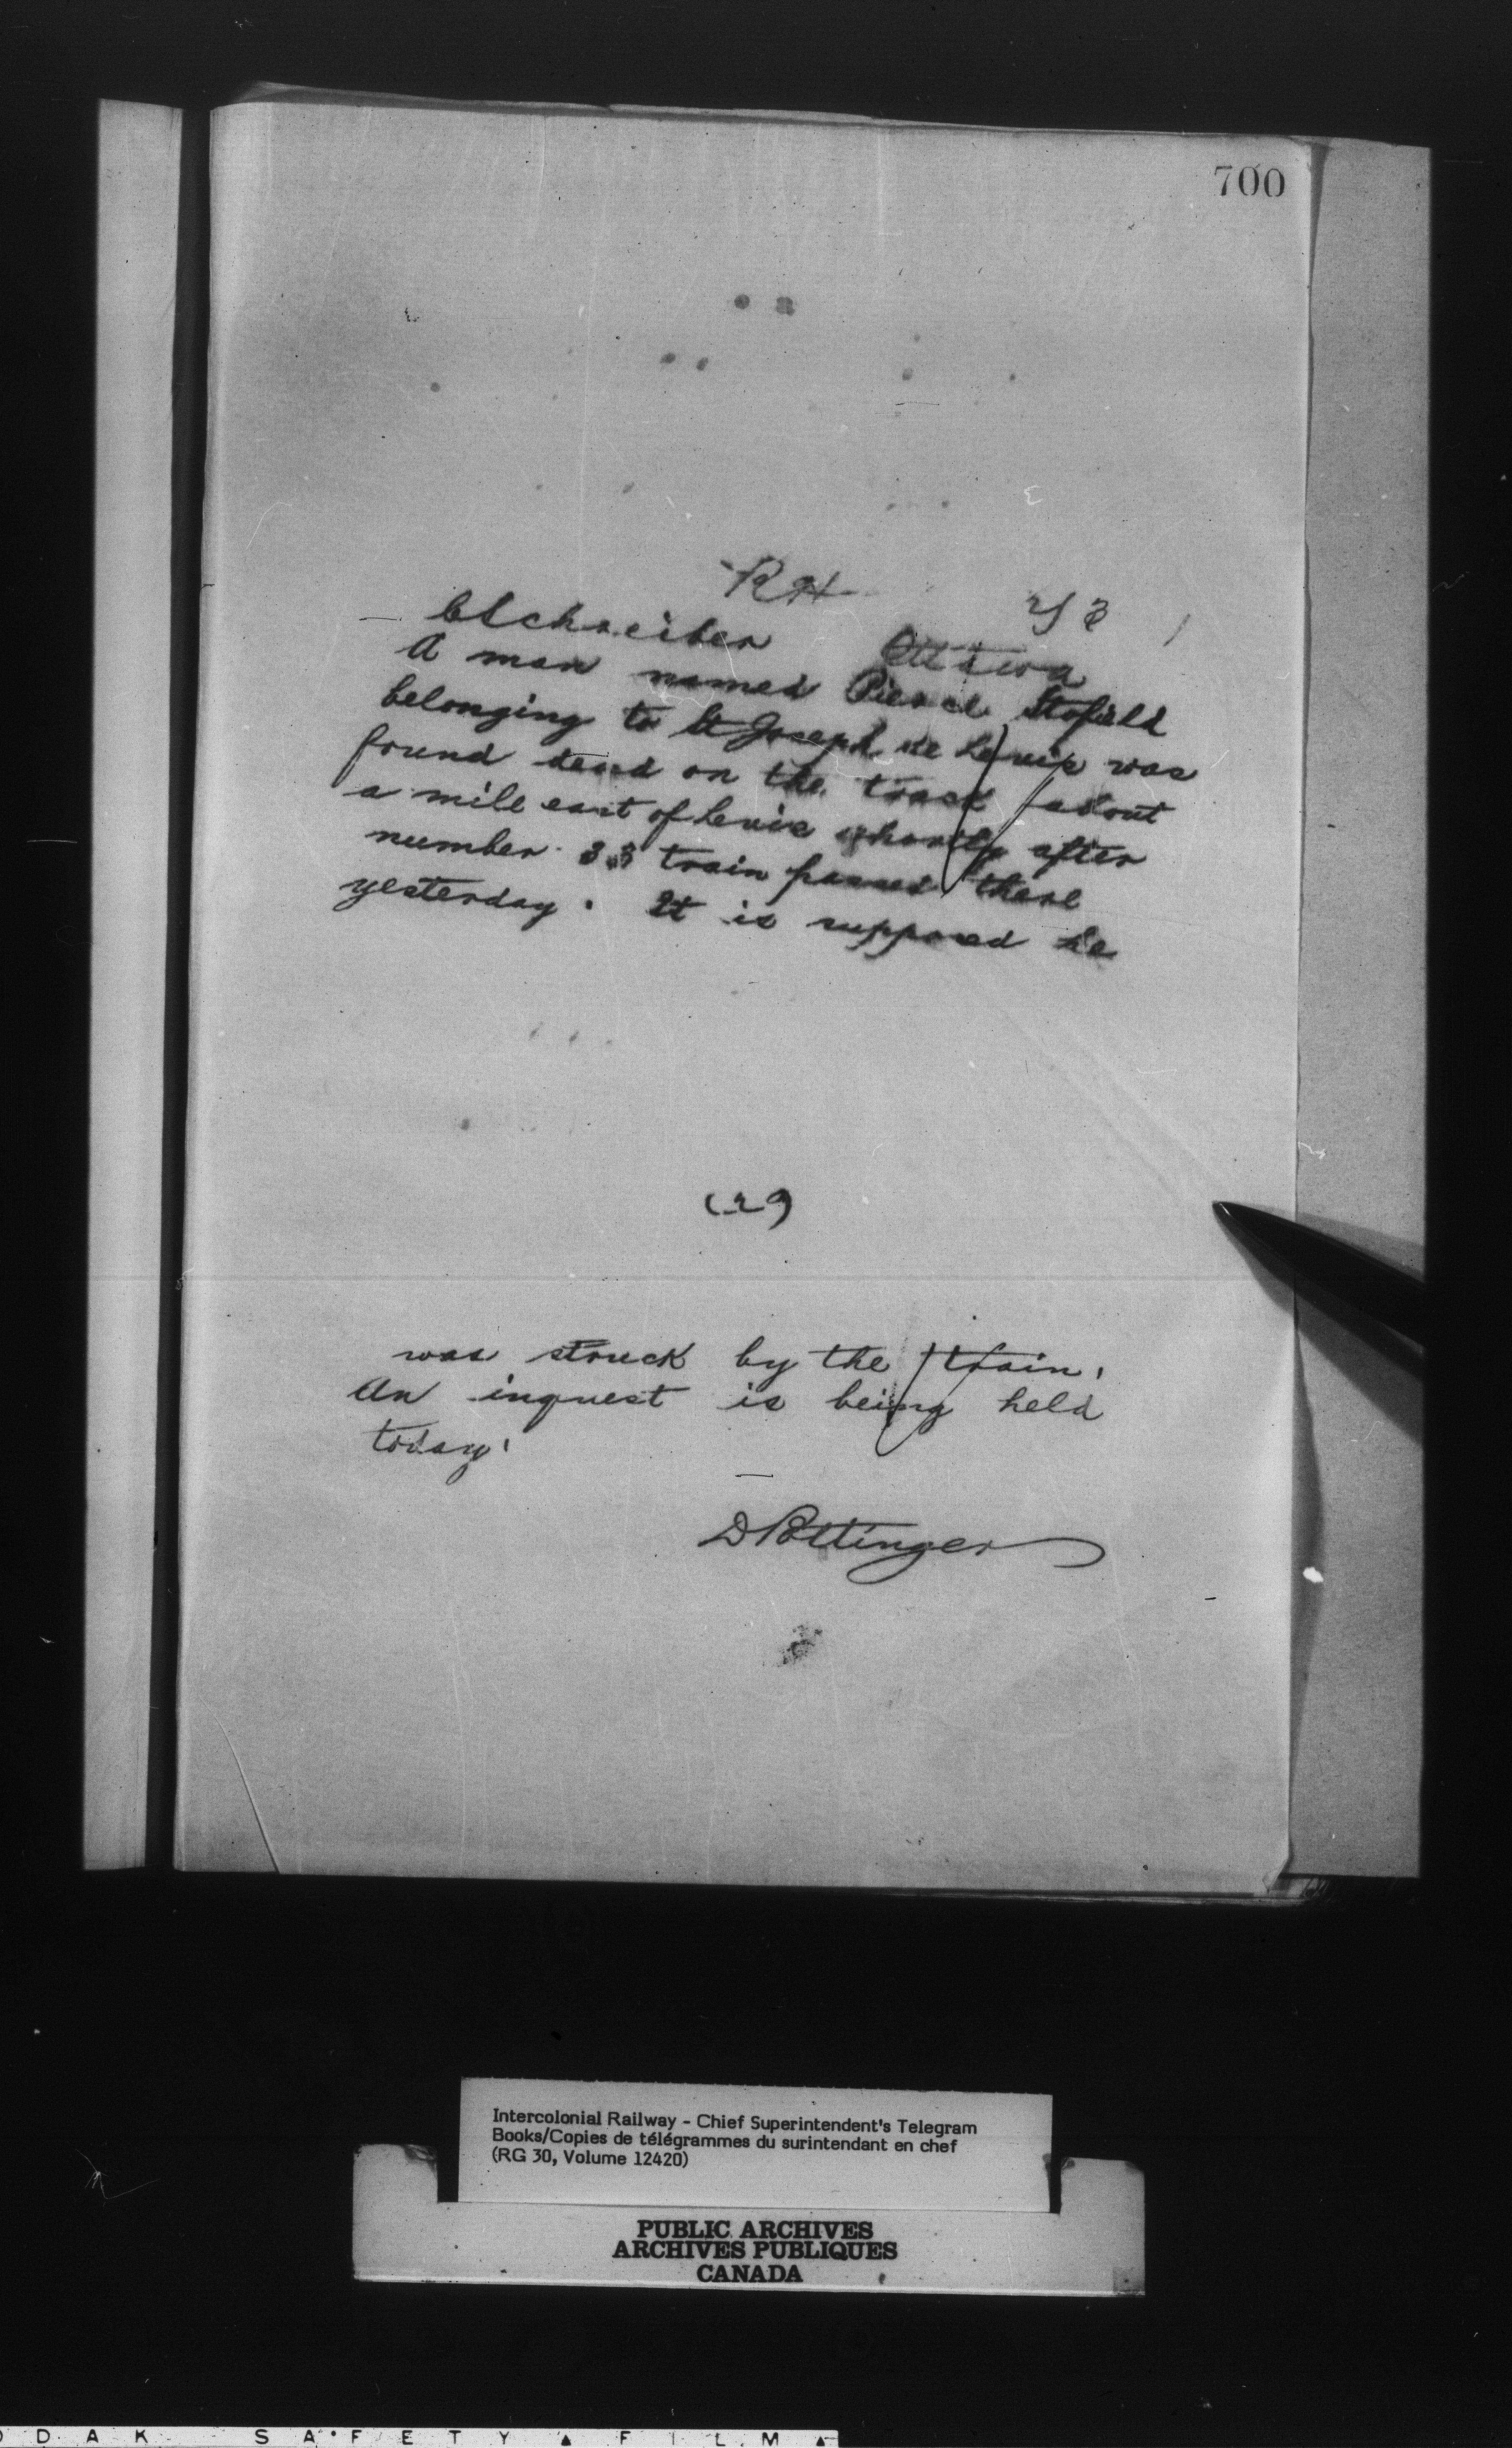 700
RH
CSchreiber Ottawa
A man named Pierce Stofield
belonging to St Joseph de Levis was
found dead on the track about
a mile east of Levis shortly after
number 33 train passed there
yesterday. It is supposed he
(2)
was struck by the train.
An inquest is being held
today.
DPottinger
Intercolonial Railway - Chief Superintendent's Telegram
Books/Copies de télégrammes du surintendant en chef
(RG 30, Volume 12420)
PUBLIC ARCHIVES
ARCHIVES PUBLIQUES
CANADA
ODAK SAFETY FILM